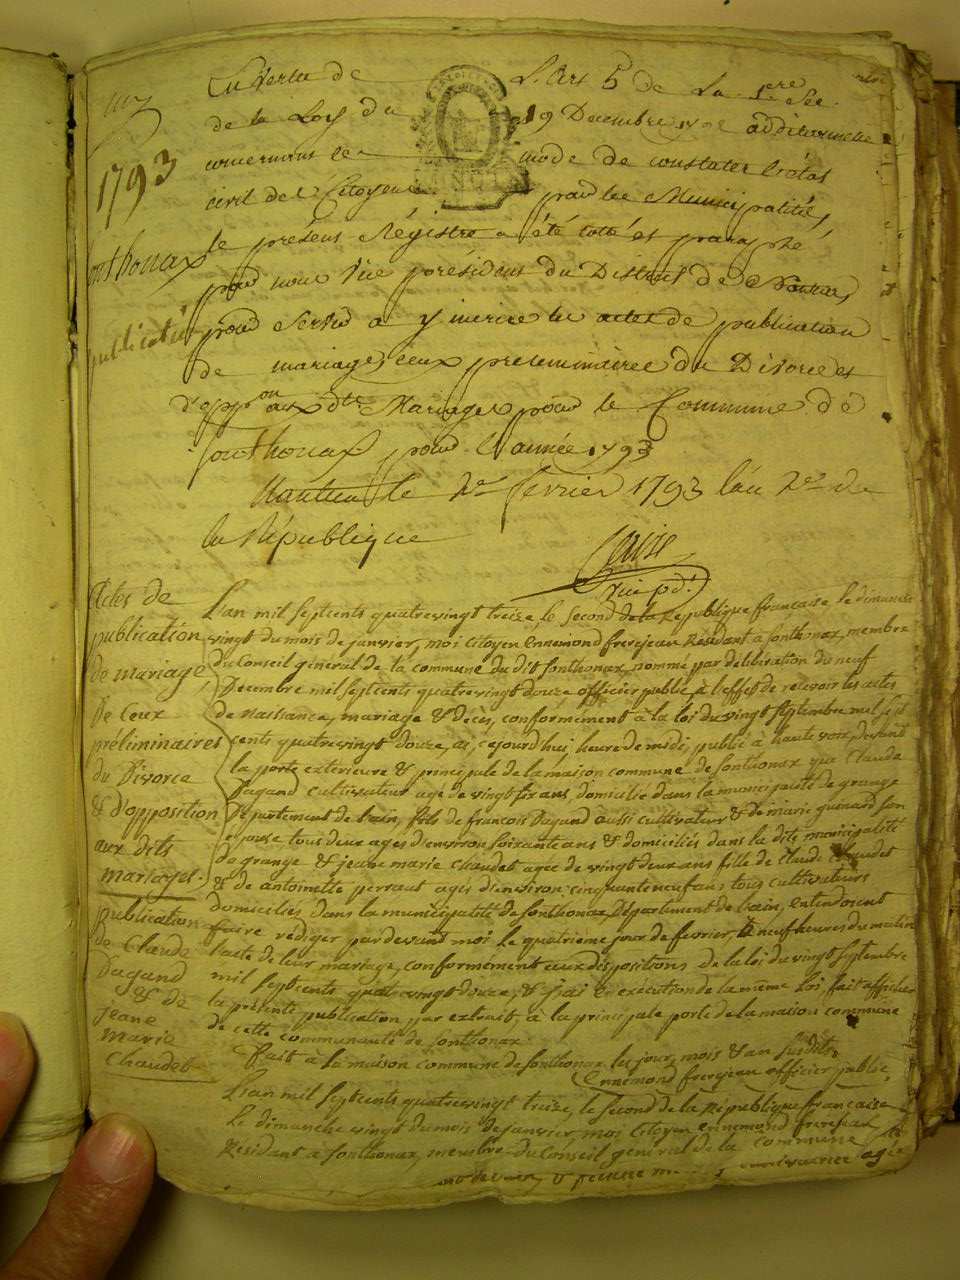 1793
Sonthonax
publication
En vertu de L'Art 5 de La 1ere Sec.
de la Loy du 19 Decembre 1792 additionnelle
concernant le mode de constater l'état
civil des Citoyens par les Municipalités,
le présent Régistre a été cotté et paraphé
par nous Vice président du District de Nantua,
pour servir a y inscrire les actes de publication
de mariage, ceux preliminaires du Divorce et
d'oppon aux dts Mariages pour la Commune de
Sonthonax, pour l'année 1793
Nantua le 2e fevrier 1793 l'an 2e de
la République
vice pdt
Actes de
publication
de mariage,
De Ceux
préliminaires
du Divorce
& d'opposition
aux dits
mariages.
L'an mil septcents quatrevingt treize le second de la Republique francaise le dimanche
vingt du mois de janvier, moi Citoyen Ennemond frerejean Résidant à sonthonax, membre
du Conseil général de la commune du dit sonthonax, nommé par délibération du neuf
Decembre mil septcents quatrevingt douze officier public, à l'effet de recevoir les actes
de naissance, mariage & décès, conformément à la loi du vingt septembre mil sept
cents quatrevingt douze, ai, cejourd'hui, heure de midi, publié à haute voix, devant
la porte exterieure & principale de la maison commune de sonthonax que Claude
Dagand cultivateur agé de vingt six ans, domicilié dans la municipalité de grange
Departement de l'ain, fils de francois Dagand aussi cultivateur & de marie guénard son
epouse tous deux ages d'environ soixante ans & domiciliés dans la dite municipalité
de grange & jeane marie Chaudet agée de vingt deux ans fille de Claude Chaudet
& de antoinette perraut agés d'environ cinquante neuf ans tous cultivateurs
domiciliés dans la municipalité de sonthonax Département de l'ain, entendoient
faire rédiger pardevant moi le quatrieme jour de fevrier, à neuf heures du matin
l'acte de leur mariage, conformément aux dispositions de la loi du vingt septembre
mil septcents quatrevingt douze, & j'ai en exécution de la même loi, fait afficher
la présente publication, par extrait, à la principale porte de la maison commune
de cette communauté de sonthonax.
Fait à la maison commune de sonthonax les jour, mois & an susdits.
Ennemond frerejean officier public,
publication
de Claude
Dagand
& de
jeane
marie
Chaudet
L'an mil septcents quatrevingt treize, le second de la République francaise
Le dimanche vingt du mois de janvier, moi Citoyen ennemond frerejean
Résidant à sonthonax, membre du Conseil general de la commune